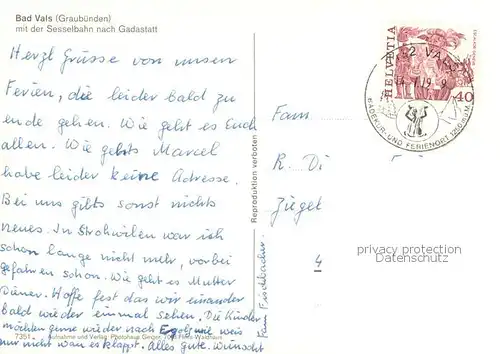 Bad Vals (Graubünden)
mit der Sesselbahn nach Gadastatt
Herzl Grüsse von unsern
Ferien, die leider bald zu
ende gehen. Wie geht es Euch
allen. Wie gehts Marcel
habe leider keine Adresse.
Bei uns gibts sonst nichts
neues. In Strohwilen war ich
schon lange nicht mehr, vorbei
gefahren schon. Wie geht es Mutter
Düner. Hoffe fest das wir einander
bald wieder einmal sehen. Die Kinder
möchten gerne wieder nach Egolf, wie weis
nur nicht wan es klappt. Alles gute. Wünscht
Fam Fischbacher
7351
Aufnahme und Verlag: Photohaus Geiger, Flims Waldhaus
Reproduktion verboten
HELVETIA
40
VALS
BADEKUR- UND FERIENORT 1250 M
Fam
R. Di
Zügel
4
privacy protection
Datenschutz